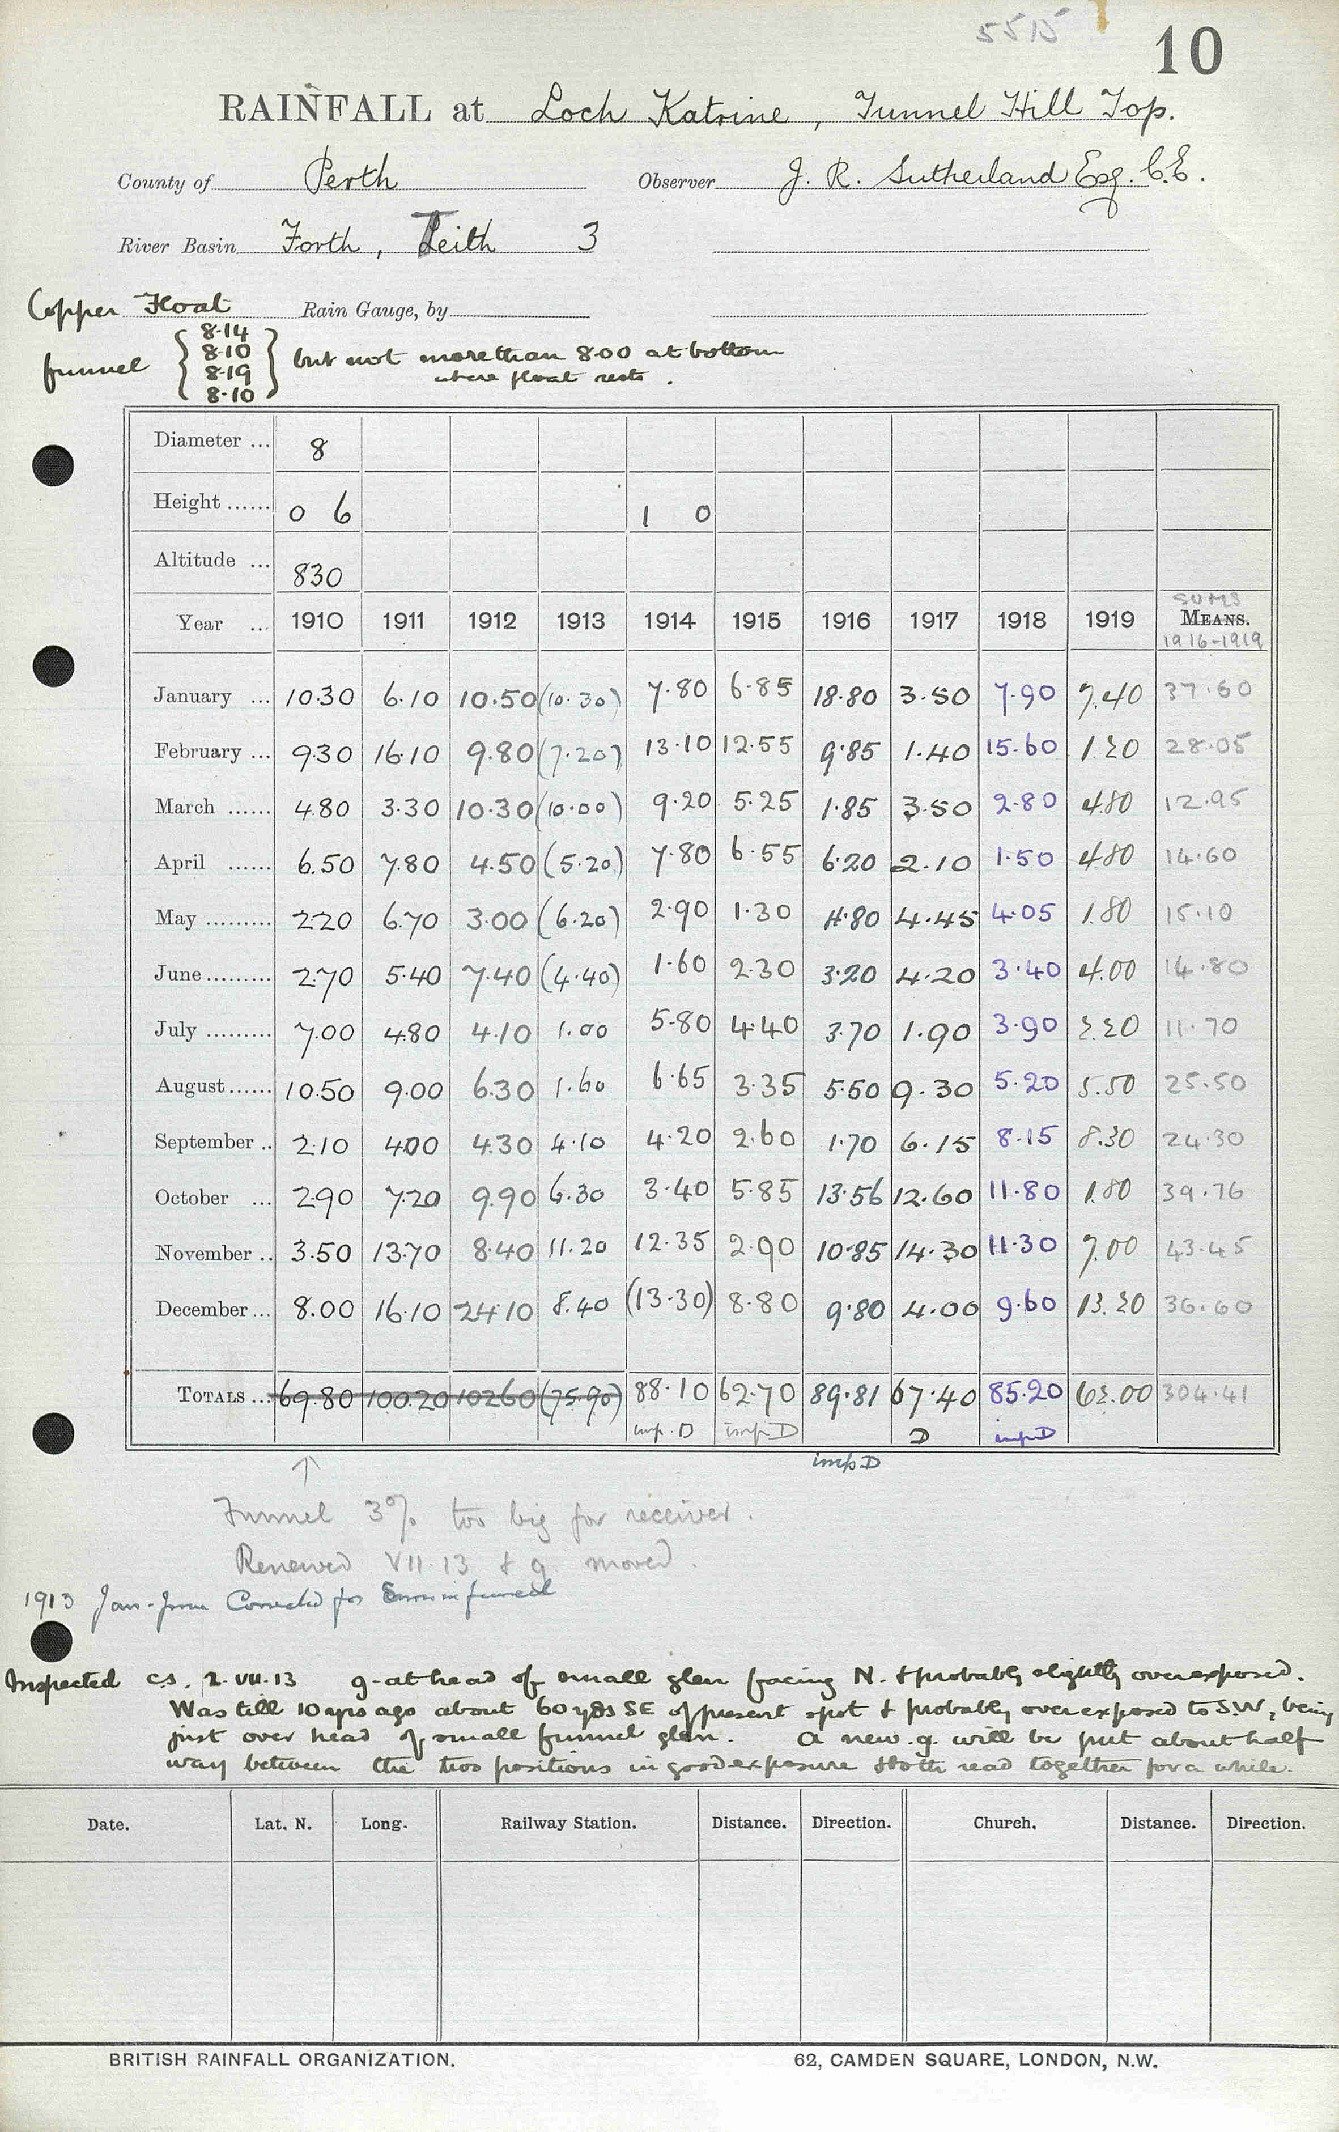 5515
10
RAINFALL at Loch Katrine, Tunnel Hill Top.
County of Perth Observer J. R. Sutherland Esq. C.E.
River Basin Forth, Teith 3
Copper Float Rain Gauge, by
funnel { 8.14 8.10 8.19 8.10 } but not more than 8.00 at bottom
where float rests.
Diameter ... 8
Height ...... 0 6 1 0
Altitude ... 830
SUMS
Year ... 1910 1911 1912 1913 1914 1915 1916 1917 1918 1919 MEANS.
1916-1919
January ... 10.30 6.10 10.50 (10.30) 7.80 6.85 18.80 3.50 7.90 7.40 37.60
February ... 9.30 16.10 9.80 (7.20) 13.10 12.55 9.85 1.40 15.60 1.20 28.05
March ...... 4.80 3.30 10.30 (10.00) 9.20 5.25 1.85 3.50 2.80 4.80 12.95
April ...... 6.50 7.80 4.50 (5.20) 7.80 6.55 6.20 2.10 1.50 4.80 14.60
May ......... 2.20 6.70 3.00 (6.20) 2.90 1.30 4.80 4.45 4.05 1.80 15.10
June ......... 2.70 5.40 7.40 (4.40) 1.60 2.30 3.20 4.20 3.40 4.00 14.80
July ......... 7.00 4.80 4.10 1.00 5.80 4.40 3.70 1.90 3.90 2.20 11.70
August ...... 10.50 9.00 6.30 1.60 6.65 3.35 5.50 9.30 5.20 5.50 25.50
September .. 2.10 4.00 4.30 4.10 4.20 2.60 1.70 6.15 8.15 8.30 24.30
October ... 2.90 7.20 9.90 6.30 3.40 5.85 13.56 12.60 11.80 1.80 39.76
November .. 3.50 13.70 8.40 11.20 12.35 2.90 10.85 14.30 11.30 7.00 43.45
December ... 8.00 16.10 24.10 8.40 (13.30) 8.80 9.80 4.00 9.60 13.20 36.60
TOTALS ... 69.80 100.20 102.60 (75.90) 88.10 62.70 89.81 67.40 85.20 62.00 304.41
imp. D imp D D imp D
imp D
Funnel 3% too big for receiver.
Renewed VII.13 & g moved.
1913 Jan-June Corrected for Error in funnel
Inspected C.S. 2.VII.13 g. at head of small glen facing N. & probably slightly overexposed.
Was till 10 yrs ago about 60 yds SE of present spot & probably over exposed to SW, being
just over head of small funnel glen. A new g. will be put about half
way between the two positions in good exposure & both read together for a while.
Date. Lat. N. Long. Railway Station. Distance. Direction. Church. Distance. Direction.
BRITISH RAINFALL ORGANIZATION. 62, CAMDEN SQUARE, LONDON, N.W.